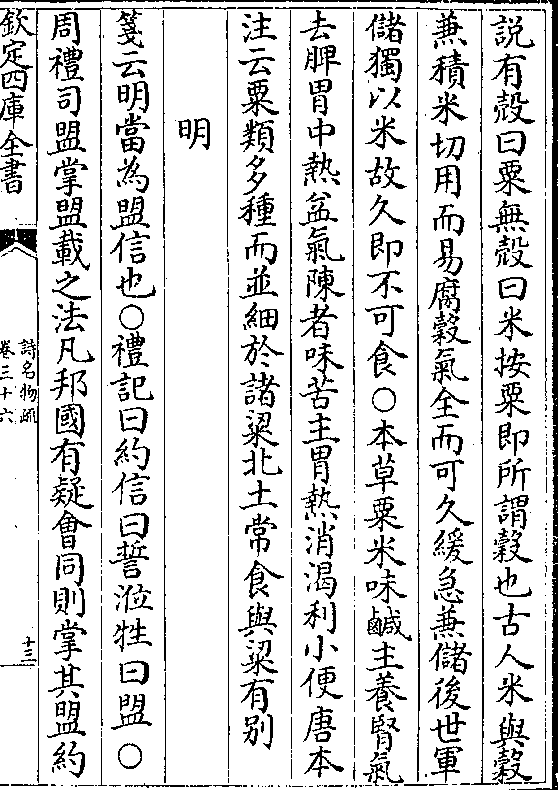 説有殼曰粟無殼曰米按粟即所謂穀也古人米與穀
兼積米切用而易腐穀氣全而可久緩急兼儲後世軍
儲獨以米故久即不可食○本草粟米味鹹主養腎氣
去脾胃中熱益氣陳者味苦主胃熱消渴利小便唐本
注云粟類多種而並細於諸粱北土常食與粱有别
明
箋云明當為盟信也○禮記曰約信曰誓涖牲曰盟○
周禮司盟掌盟載之法凡邦國有疑會同則掌其盟約
欽定四庫全書
詩名物疏
卷三十六
十三